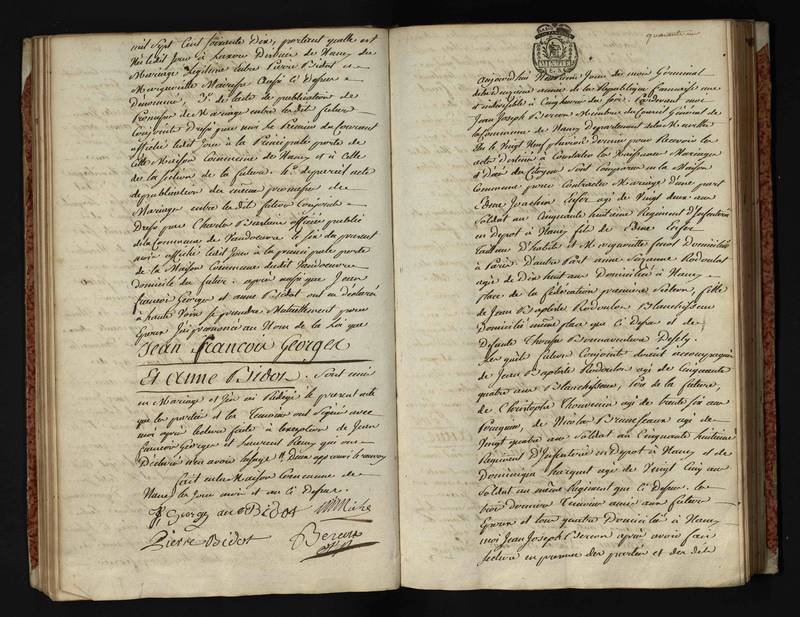 mil Sept Cent Soixante Dix, portant quelle est
Née ledit Jour à Laxou District de Nancy du
Mariage Légitime entre Pierre Bidot et
Margueritte
Domicone, 3°. de l'acte de publication de
Promesse de Mariage entre lesdit futur
Conjoint Dressé par moi le Premier du Courrant
affiché ledit Jour à la Principale porte de
cette Maison Commune de Nancy et à celle
de la Section de la future. 4°. de pareil acte
de publication de même promesse de
Mariage entre lesdit futur Conjoint
Dressé par Charles officier public
de la Commune de Vandoeuvre le Six du présent
mois affiché ledit Jour à la principale porte
de la Maison Commune dudit Vandoeuvre
domicile du futur. après aussi que Jean
françois Georges et anne Bidot ont eu déclaré
à haute Voix se prendre Mutuellement pour
Epoux J'ai prononcé au Nom de la Loi que
Jean françois Georges
Et Anne Bidot. Sont unis
en Mariage et J'ai Rédigé le présent acte
que les parties et les Temoins ont Signés avec
moi après lecture faite à l'exception de Jean
françois Georges et Laurent Remy qui ont
Déclaré n'en avoir l'usage
fait en la Maison Commune de
Nancy les Jour mois et an Ci Dessus.
Georges anne Bidot Miché
Pierre Bidot Beron
quarante
Aujourdhui Jour du mois Germinal
de la Deuxieme année de la Republique française une
et indivisible à Cinq heures du soir. Pardevant moi
Jean Joseph Beron Membre du Conseil Général de
la Commune de Nancy Departement de la Meurthe
élu le Vingt Neuf pluviose dernier pour Recevoir les
acte destinés à Constater les Naissances Mariages
et Décès des Citoyens Sont Comparus en la Maison
Commune pour Contracter Mariage d'une part
Edme Joachim agé de Vingt deux ans
Soldat au Cinquante huitieme Regiment d'Infanterie
en Depot à Nancy fils de Edme
et Marguerite Domiciliés
à Paris. D'autre Part anne Suzanne Rodoulot
agée de Dix huit ans Domiciliée à Nancy
place de la Fédération premiere Section, fille
de Jean Baptiste Rodoulot Blanchisseur
Domicilié même place que Ci Dessus et de
Defunte Therese Bonnaventure
Lesquels futurs Conjoints étoient accompagnés
de Jean Baptiste Rodoulot agé de Cinquante
quatre ans Blanchisseur, Pere de la future,
de Christophe Thouvenin agé de trente six ans
de Nicolas Brunesseaux agé de
Vingt quatre ans Soldat au Cinquante huitieme
Regiment d'Infanterie en Depot à Nancy et de
Dominique agé de Vingt Cinq ans
Soldat au même Regiment que Ci Dessus. les
trois Derniers Temoins amis aux future
Epoux et tous quatre Domiciliés à Nancy
moi Jean Joseph Beron après avoir fait
lecture en présence des parties et des dits